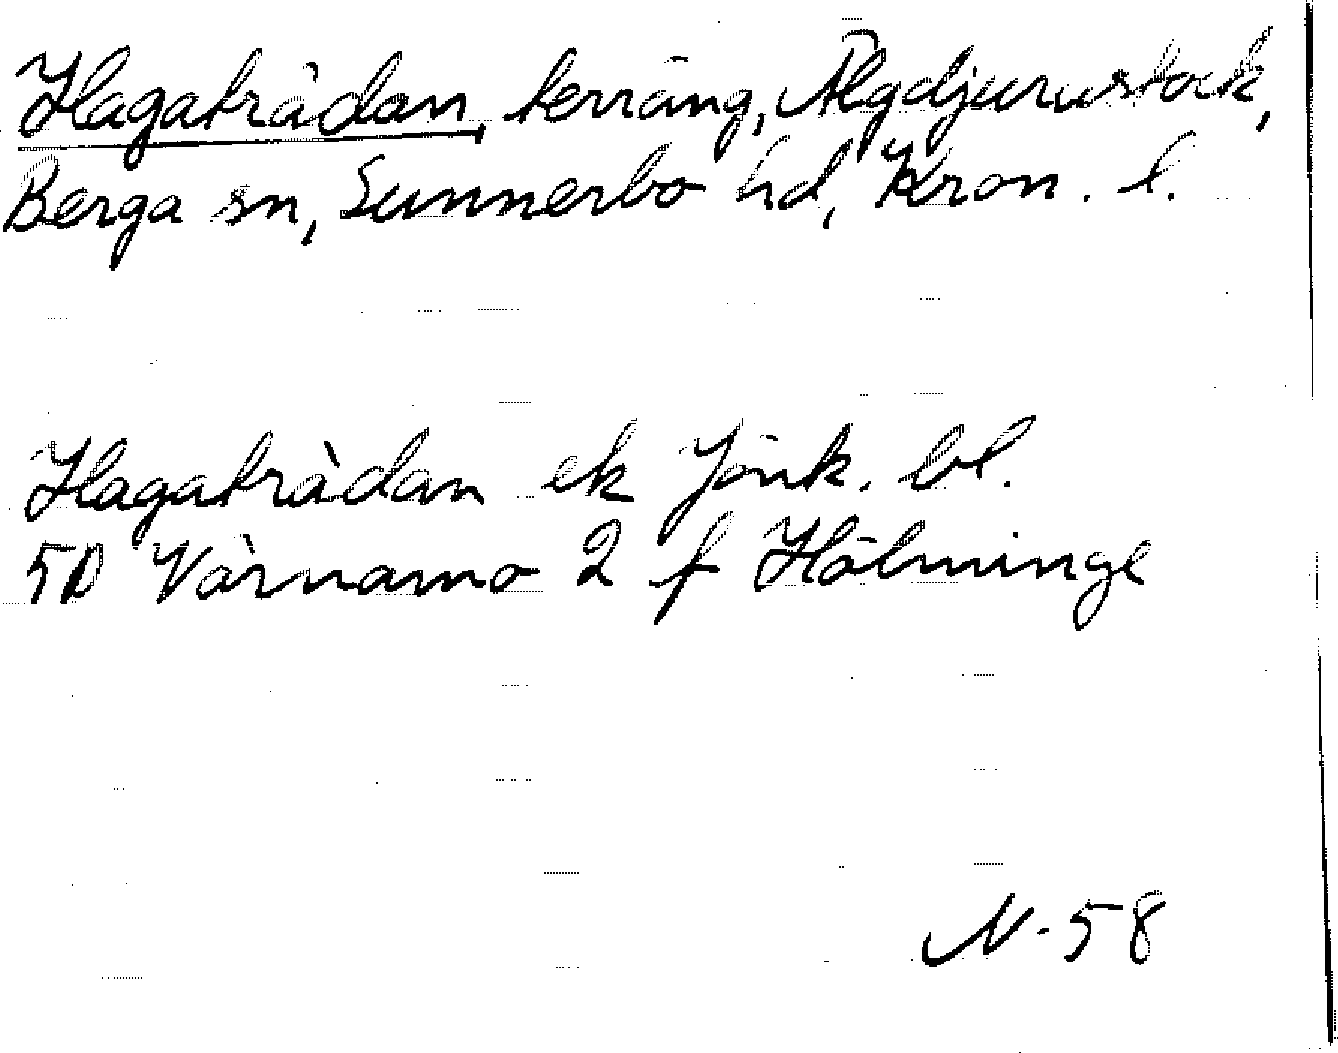 Hagabrådan, terräng, Älgdjurustock,
Berga sn, Sunnerbo hd, Kron. l.
Hagabrådan ek Jönk. bl.
5D Värnamo 2 f Hölminge
N-58